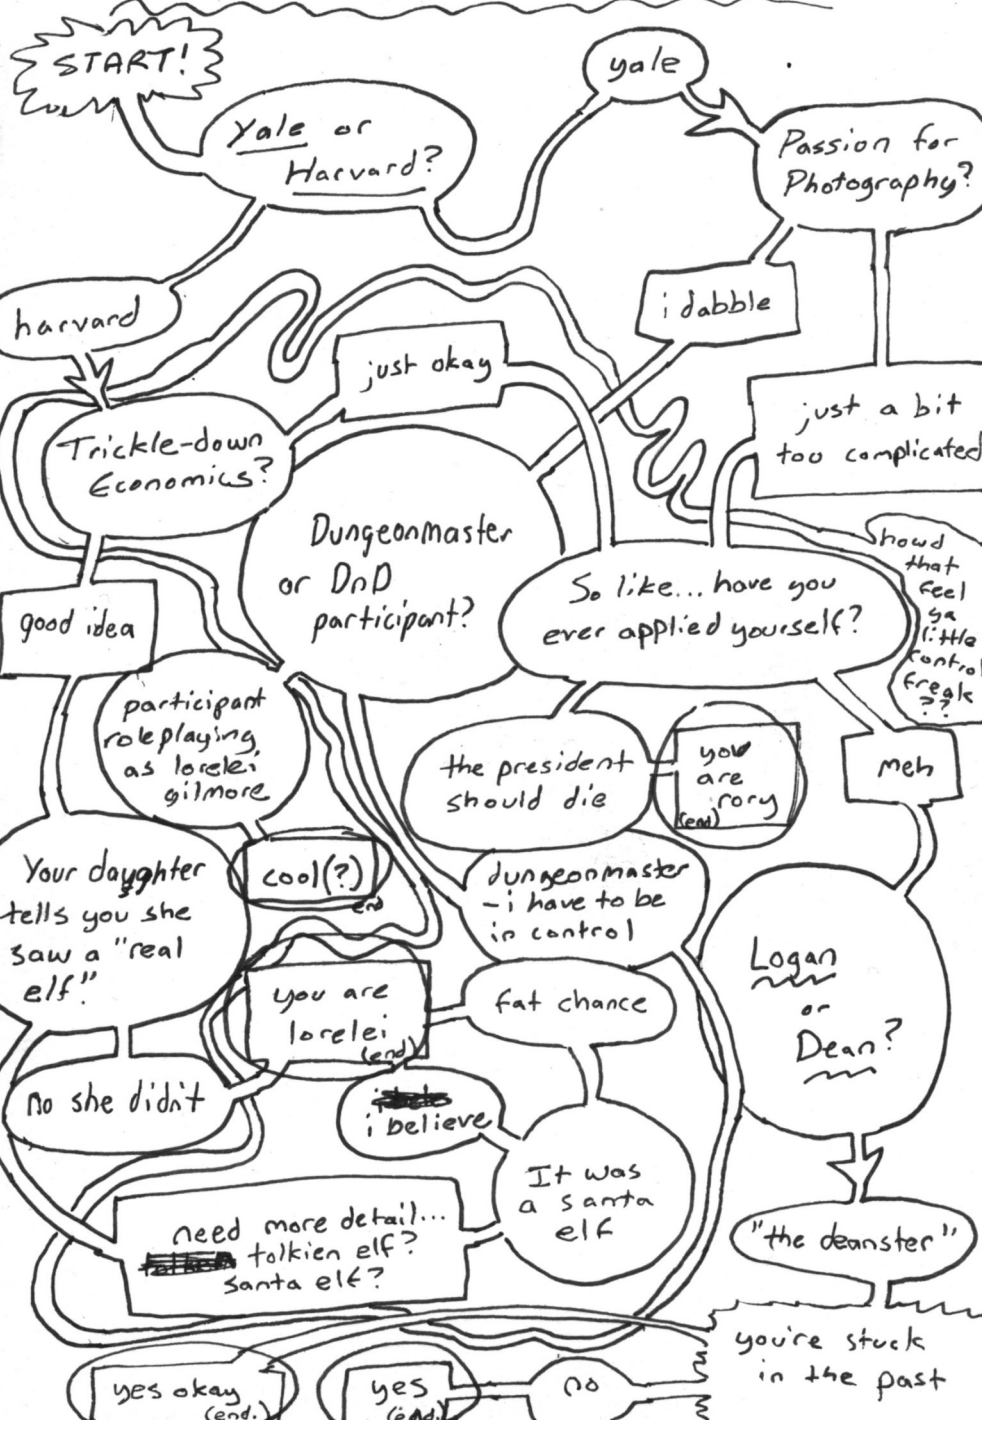 START!
Yale or
Harvard?
yale
Passion for
Photography?
harvard
i dabble
just okay
just a bit
too complicated
Trickle-down
Economics?
Dungeonmaster
or DnD
participant?
So like... have you
ever applied yourself?
howd
that
feel
ya
little
control
freak
??
good idea
participant
roleplaying
as lorelei
gilmore
the president
should die
you
are
rory
(end)
meh
Your daughter
tells you she
saw a "real
elf."
cool(?)
end
dungeonmaster
- i have to be
in control
Logan
or
Dean?
you are
lorelei
(end)
fat chance
no she didn't
i believe
It was
a santa
elf
need more detail...
tolkien elf?
santa elf?
"the deanster"
you're stuck
in the past
yes okay
(end.)
yes
(end.)
no